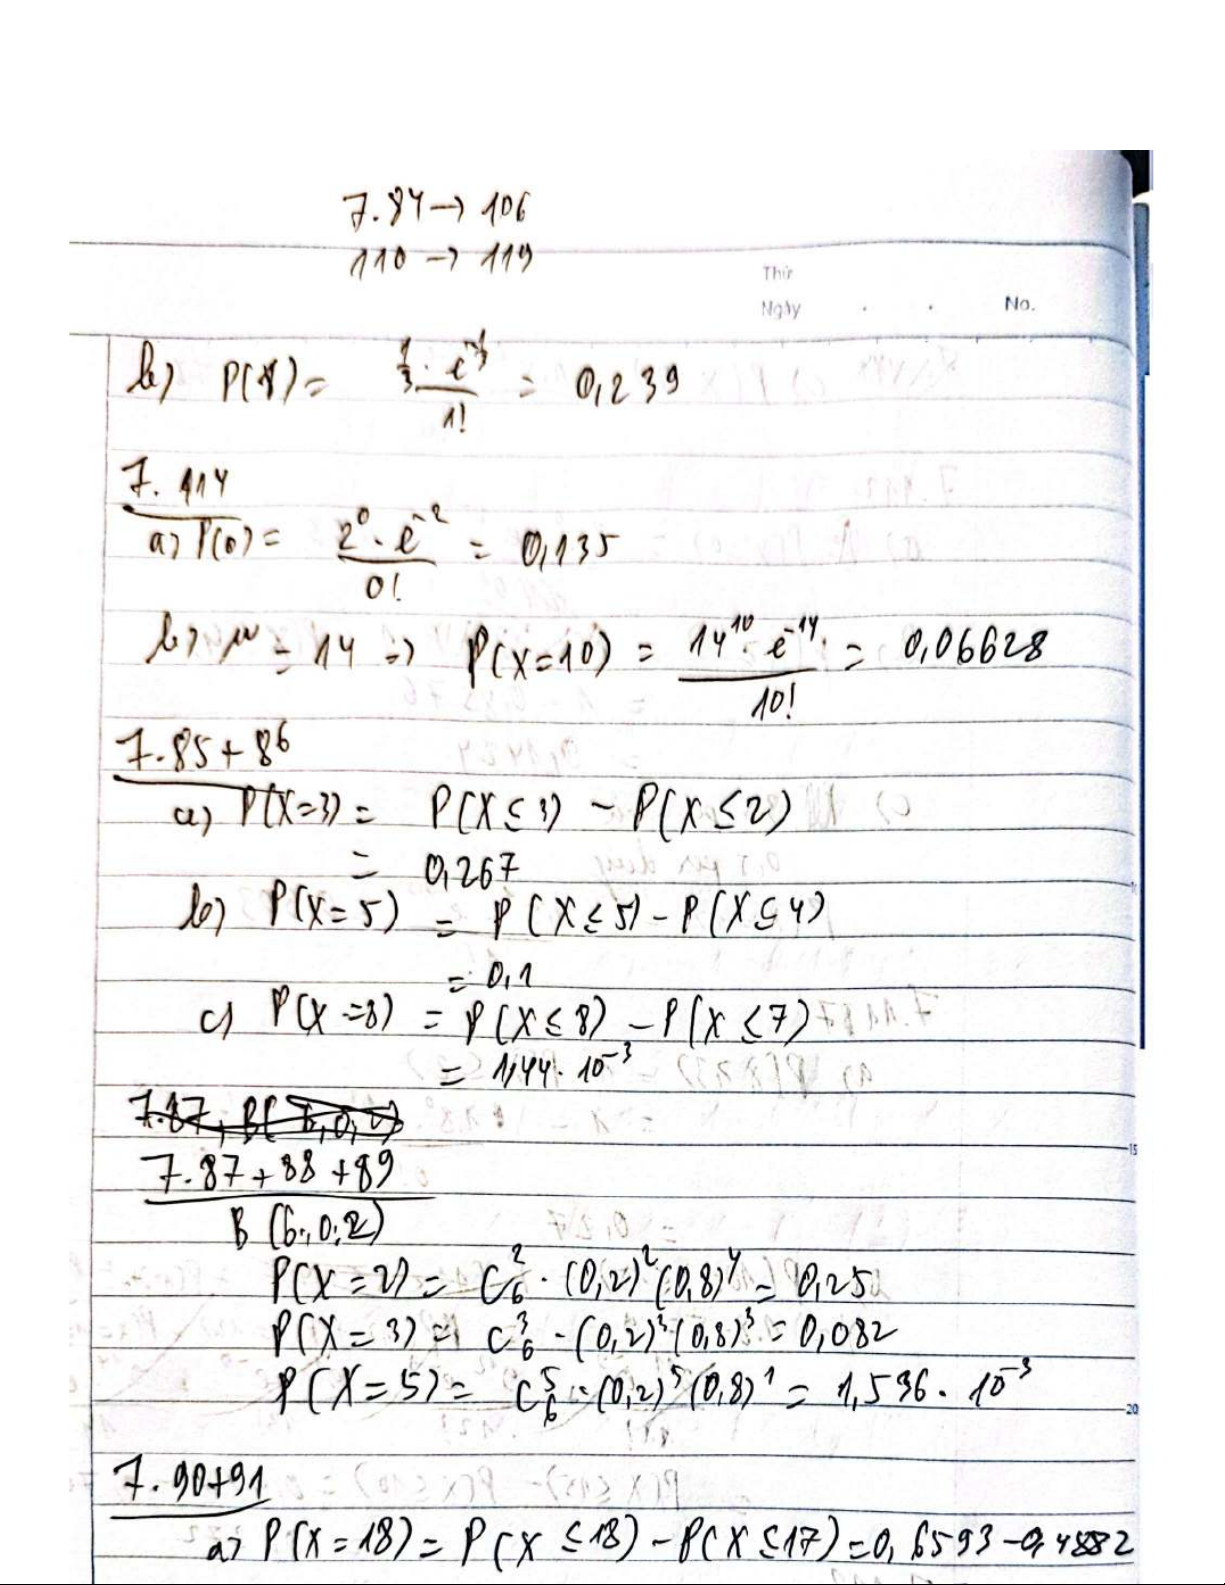 7.84 → 106
110 → 119
Thứ
Ngày . . No.
b) P(1) = 1/3 · e^-1/3 / 1! = 0,239
7.114
a) P(0) = 2^0 · e^-2 / 0! = 0,135
b) μ = 14 => P(X=10) = 14^10 · e^-14 / 10! = 0,06628
7.85+86
a) P(X=3) = P(X≤3) - P(X≤2)
= 0,267
b) P(X=5) = P(X≤5) - P(X≤4)
= 0,1
c) P(X=8) = P(X≤8) - P(X≤7)
= 1,44 · 10^-3
7.87+88+89
B(6;0,2)
P(X=2) = C_6^2 · (0,2)^2 (0,8)^4 = 0,25
P(X=3) = C_6^3 · (0,2)^3 (0,8)^3 = 0,082
P(X=5) = C_6^5 · (0,2)^5 (0,8)^1 = 1,536 · 10^-3
15
20
7.90+91
a) P(X=18) = P(X≤18) - P(X≤17) = 0,6593 - 0,4882